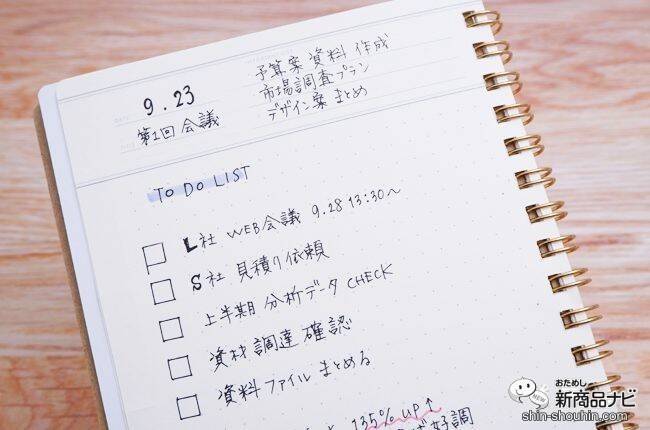 9.23
第1回会議
予算案資料作成
市場調査プラン
デザイン案まとめ
TO DO LIST
L社 WEB会議 9.28 13:30〜
S社 見積り依頼
上半期 分析データ CHECK
資材調達確認
資料ファイルまとめる
135% UP↑
好調
おためし
新商品ナビ
NEW
shin-shouhin.com